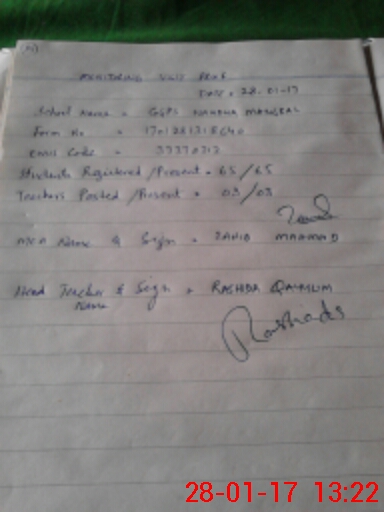 MONITORING VISIT PROF
DATE = 28.01-17
School Name = GGPS
Form No = 1701281318640
EMIS Code = 37370213
Students Registered/Present = 65/65
Teachers Posted/Present = 03/03
MEA Name & Sign = ZAHID MAHMAD
Head Teacher & Sign = RASHIDA QAYYUM
Name
Rashida
28-01-17 13:22